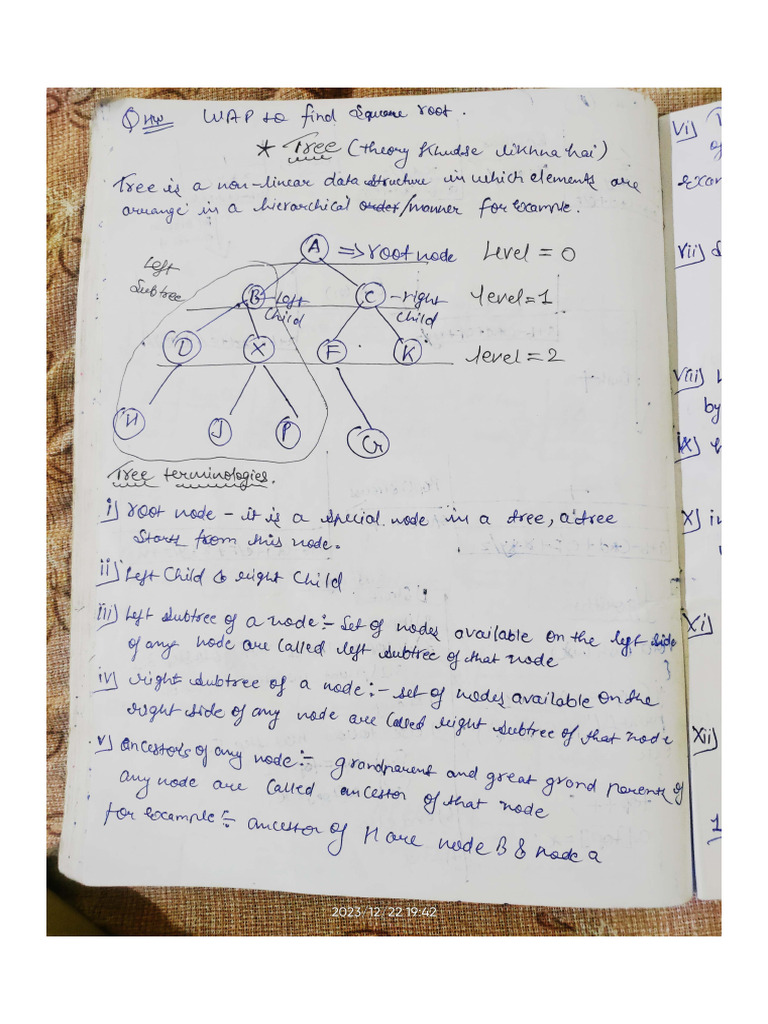 Q HW WAP to find square root.
* Tree (theory khudse likhna hai)
Tree is a non-linear data structure in which elements are
arrange in a hierarchical order/manner for example.
A => root node Level = 0
Left
Subtree
B - Left
Child
C - right
child
level = 1
D X F K level = 2
H J P G
Tree terminologies.
i) root node - it is a special node in a tree, a tree
Starts from this node.
ii) Left Child & right Child
iii) Left subtree of a node :- Set of nodes available on the left side
of any node are called left subtree of that node
iv) right subtree of a node :- set of nodes available on the
right side of any node are called right subtree of that node
v) ancestors of any node :- grandparent and great grand parents of
any node are called ancestor of that node
for example :- ancestor of H are node B & node a
vi)
of
exam
vii)
viii)
by
ix)
x) i
xi)
xii)
1
2023/12/22 19:42